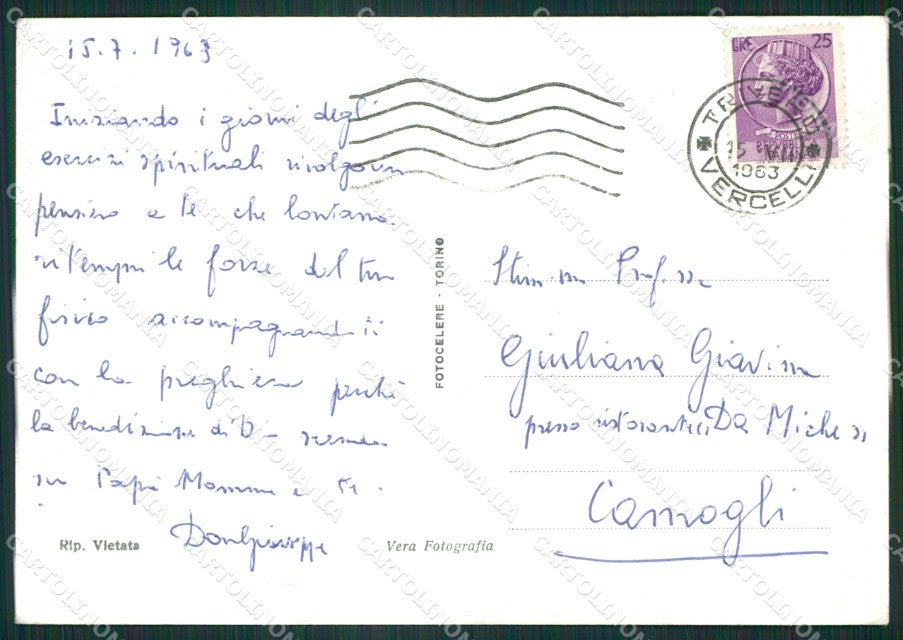 15.7.1963
Iniziando i giorni degli
esercizi spirituali rivolgo un
pensiero a te che lontana
ritempri le forze del tuo
fisico accompagnandoti
con la preghiera perchè
la benedizione di D- scenda
su Papà Mamma e te.
Don Giuseppe
Rip. Vietata
Vera Fotografia
FOTOCELERE - TORINO
LIRE 25
TRIVERO
15
1963
VERCELLI
Prof.ssa
Giuliana Giavina
presso ristorante Da Miche
Camogli
CARTOLINOMANIA